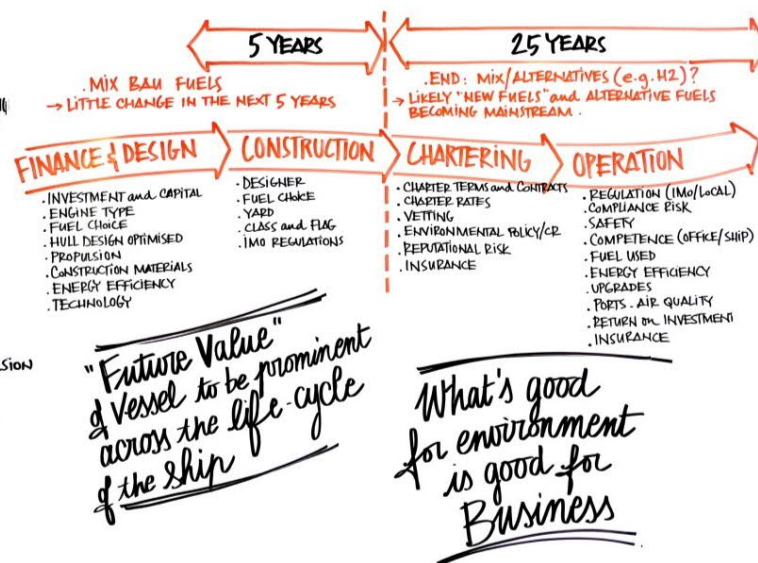 5 YEARS
25 YEARS
.MIX BAU FUELS
→ LITTLE CHANGE IN THE NEXT 5 YEARS
.END: MIX/ALTERNATIVES (e.g. H2)?
→ LIKELY "NEW FUELS" and ALTERNATIVE FUELS
BECOMING MAINSTREAM.
FINANCE & DESIGN
CONSTRUCTION
CHARTERING
OPERATION
. INVESTMENT and CAPITAL
. ENGINE TYPE
. FUEL CHOICE
. HULL DESIGN OPTIMISED
. PROPULSION
. CONSTRUCTION MATERIALS
. ENERGY EFFICIENCY
. TECHNOLOGY
. DESIGNER
. FUEL CHOICE
. YARD
. CLASS and FLAG
. IMO REGULATIONS
. CHARTER TERMS and CONTRACTS
. CHARTER RATES
. VETTING
. ENVIRONMENTAL POLICY/CR
. REPUTATIONAL RISK
. INSURANCE
. REGULATION (IMO/LOCAL)
. COMPLIANCE RISK
. SAFETY
. COMPETENCE (OFFICE/SHIP)
. FUEL USED
. ENERGY EFFICIENCY
. UPGRADES
. PORTS - AIR QUALITY
. RETURN on INVESTMENT
. INSURANCE
"Future Value"
of Vessel to be prominent
across the life-cycle
of the ship
What's good
for environment
is good for
Business